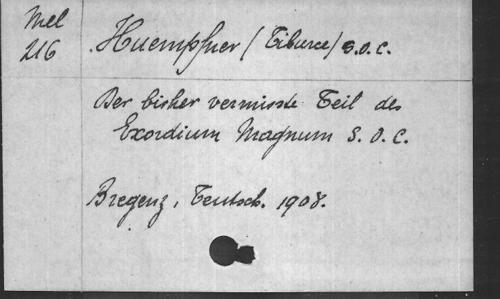 Mel
216
Huempfner (Tiburce) S.O.C.
Der bisher vermisste Teil des
Exordium Magnum S.O.C.
Bregenz, Teutsch. 1908.